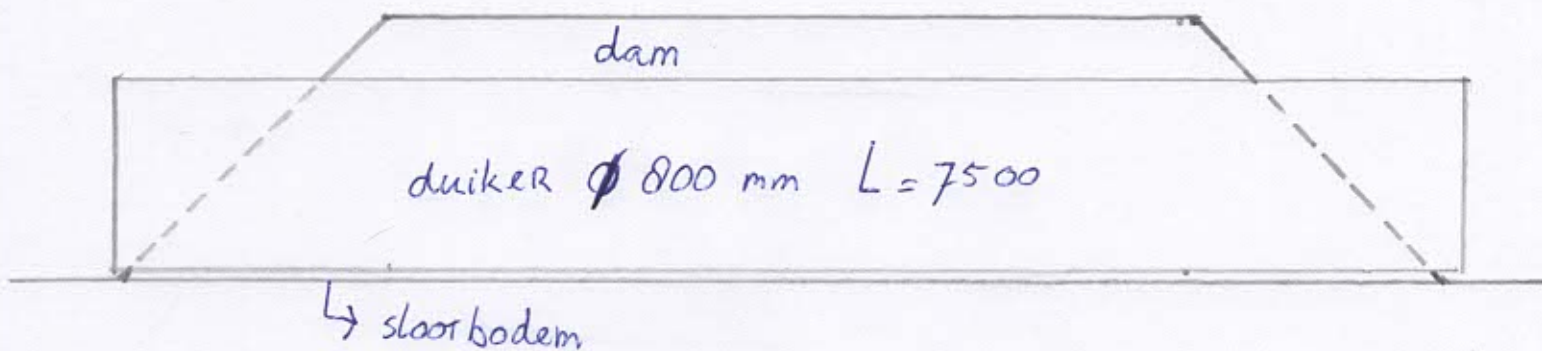 dam
duiker ϕ 800 mm L = 7500
↳ slootbodem